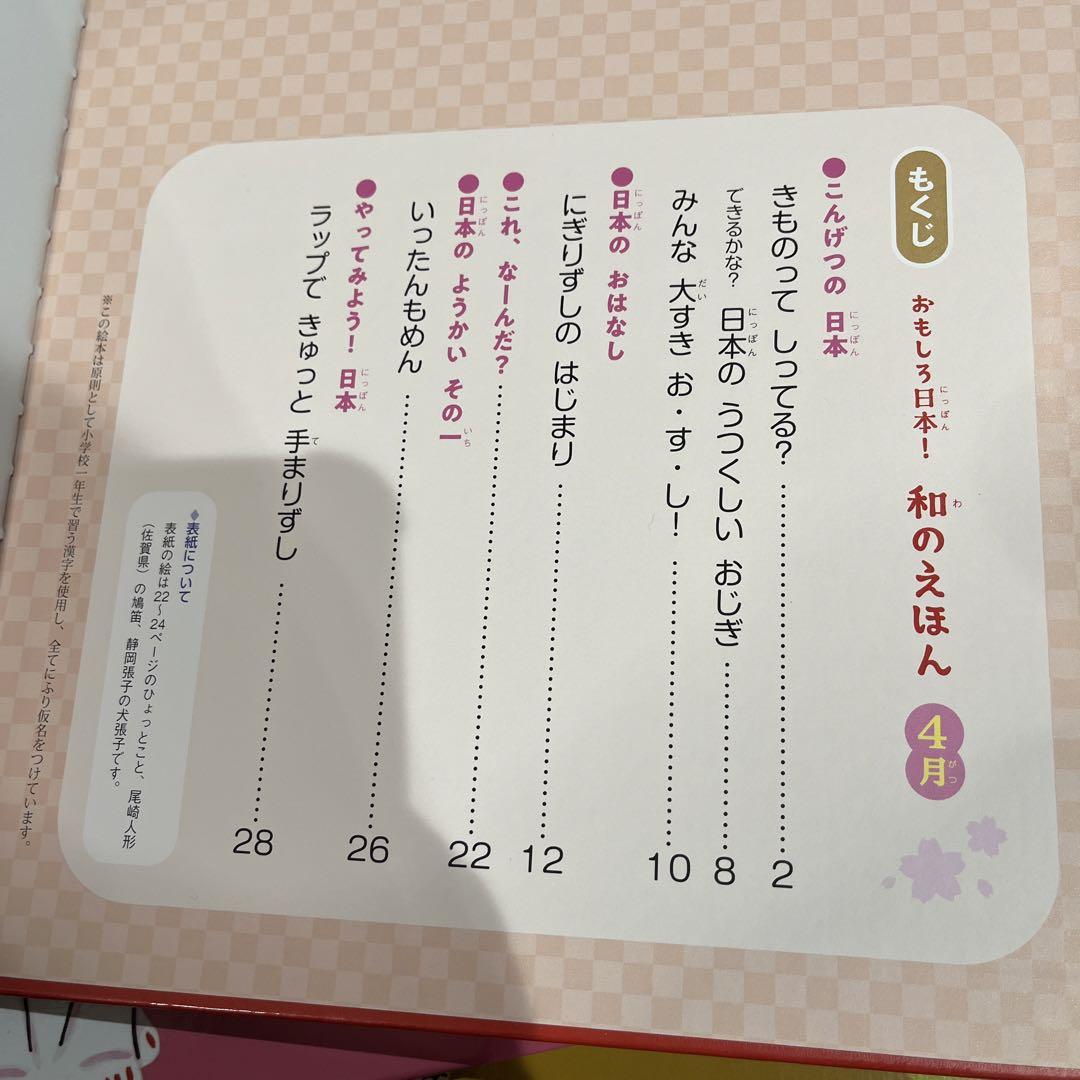 もくじ
おもしろ日本! 和のえほん 4月
にっぽん
わ
がつ
●こんげつの 日本
にっぽん
きものって しってる?……2
できるかな? 日本の うつくしい おじぎ……8
にっぽん
みんな 大すき お・す・し!……10
だい
●日本の おはなし
にっぽん
にぎりずしの はじまり……12
●これ、なーんだ?……22
●日本の ようかい その一
にっぽん
いち
いったんもめん……26
●やってみよう! 日本
にっぽん
ラップで きゅっと 手まりずし……28
て
◆表紙について
表紙の絵は22〜24ページのひょっとこと、尾崎人形
(佐賀県)の鳩笛、静岡張子の犬張子です。
※この絵本は原則として小学校一年生で習う漢字を使用し、全てにふり仮名をつけています。